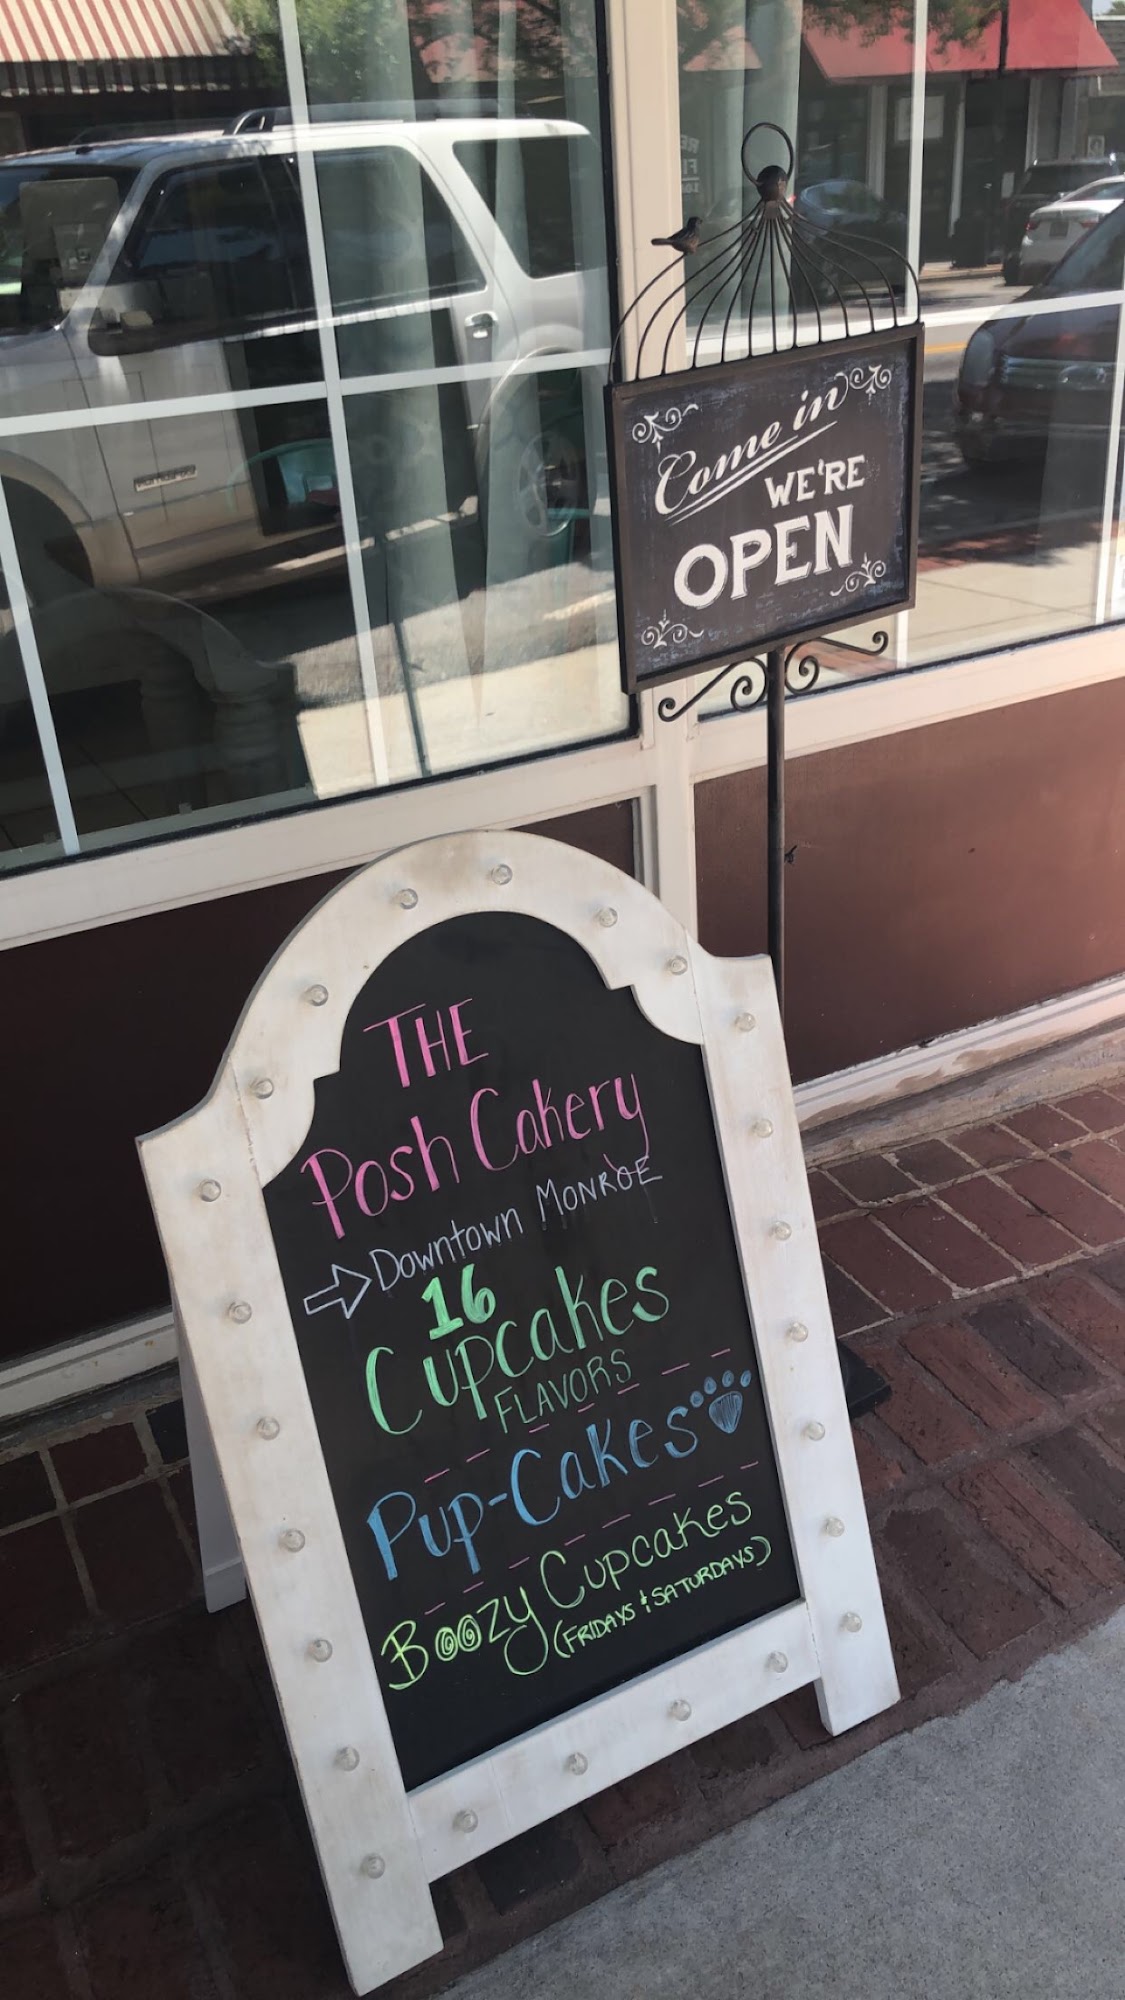 Come in
WE'RE
OPEN
THE
Posh Cakery
Downtown MONROE
16
Cupcakes
FLAVORS
Pup-Cakes
Boozy Cupcakes
(FRIDAYS & SATURDAYS)